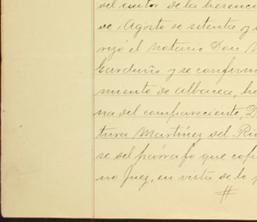 del autor de la herenci
de Agosto se setenta y
rizó el notario Don
Garduño y se confirm
miento de albacea, he
na del compareciente, D
tura Martínez del Rio
se del párrafo que cop
no Juez, en vista de lo
#